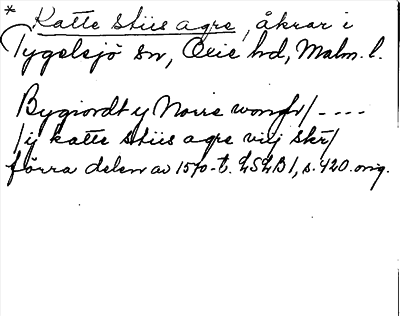 * Katte stiis agre, åkrar i
Tygelsjö sn, Oxie hd, Malm. l.
Bygiordt y Norre wongh/ - - - -
/ y katte stiis agre viij skr/
förra delen av 1570-t. LSLB 1, s. 420. orig.